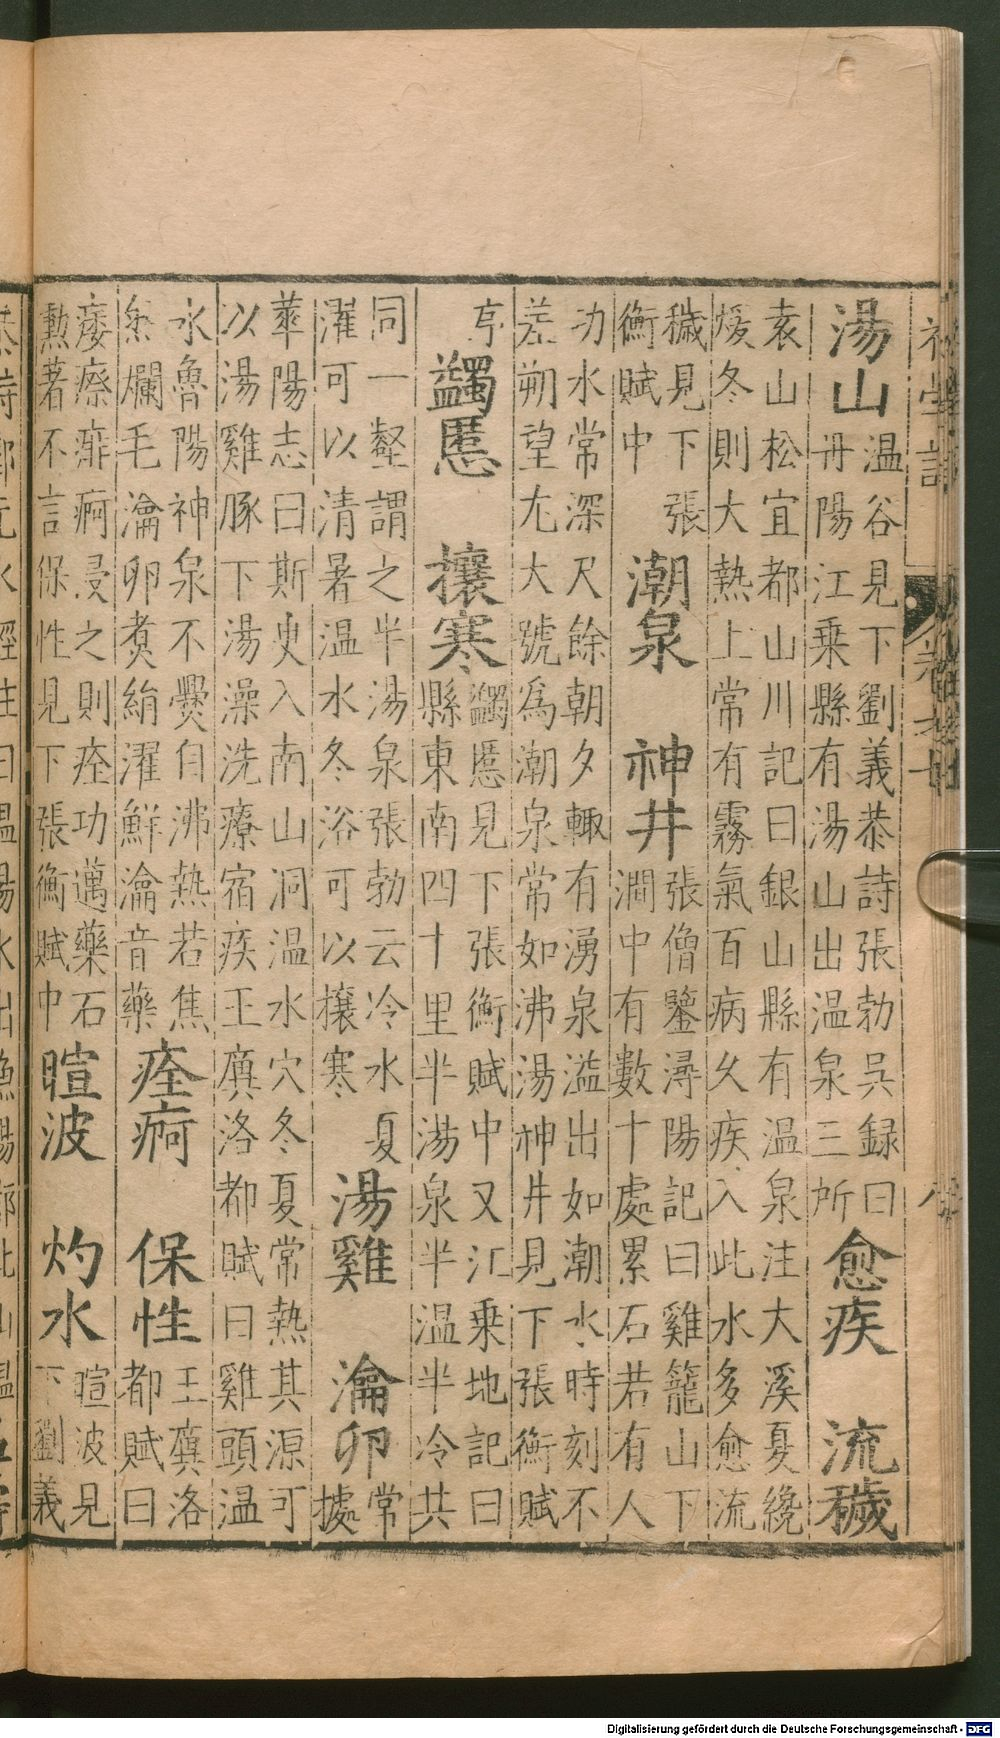 湯山
温谷見下劉義恭詩張勃吳録曰
丹陽江乗縣有湯山出温泉三所
愈疾 流穢
袁山松宜都山川記曰銀山縣有温泉注大溪夏纔
煖冬則大熱上常有霧氣百病久疾入此水多愈流
穢見下張
衡賦中
潮泉 神井
張僧鑒潯陽記曰雞籠山下
澗中有數十處累石若有人
功水常深尺餘朝夕輙有湧泉溢出如潮水時刻不
差朔望尢大號為潮泉常如沸湯神井見下張衡賦
蠲慝 攘寒
蠲慝見下張衡賦中又江乗地記曰
縣東南四十里半湯泉半温半冷共
同一壑謂之半湯泉張勃云冷水夏
濯可以清暑温水冬浴可以攘寒
湯雞 瀹卵
常
據
華陽志曰斯叟入南山洞温水穴冬夏常熱其源可
以湯雞豚下湯澡洗療宿疾王廙洛都賦曰雞頭温
水魯陽神泉不爨自沸熱若焦
爛毛瀹卵煑絹濯鮮瀹音藥
痊痾 保性
王廙洛
都賦曰
痿瘵痱痾浸之則痊功邁藥石
勲著不言保性見下張衡賦中
暄波 灼水
暄波見
下劉義
Digitalisierung gefördert durch die Deutsche Forschungsgemeinschaft - DFG